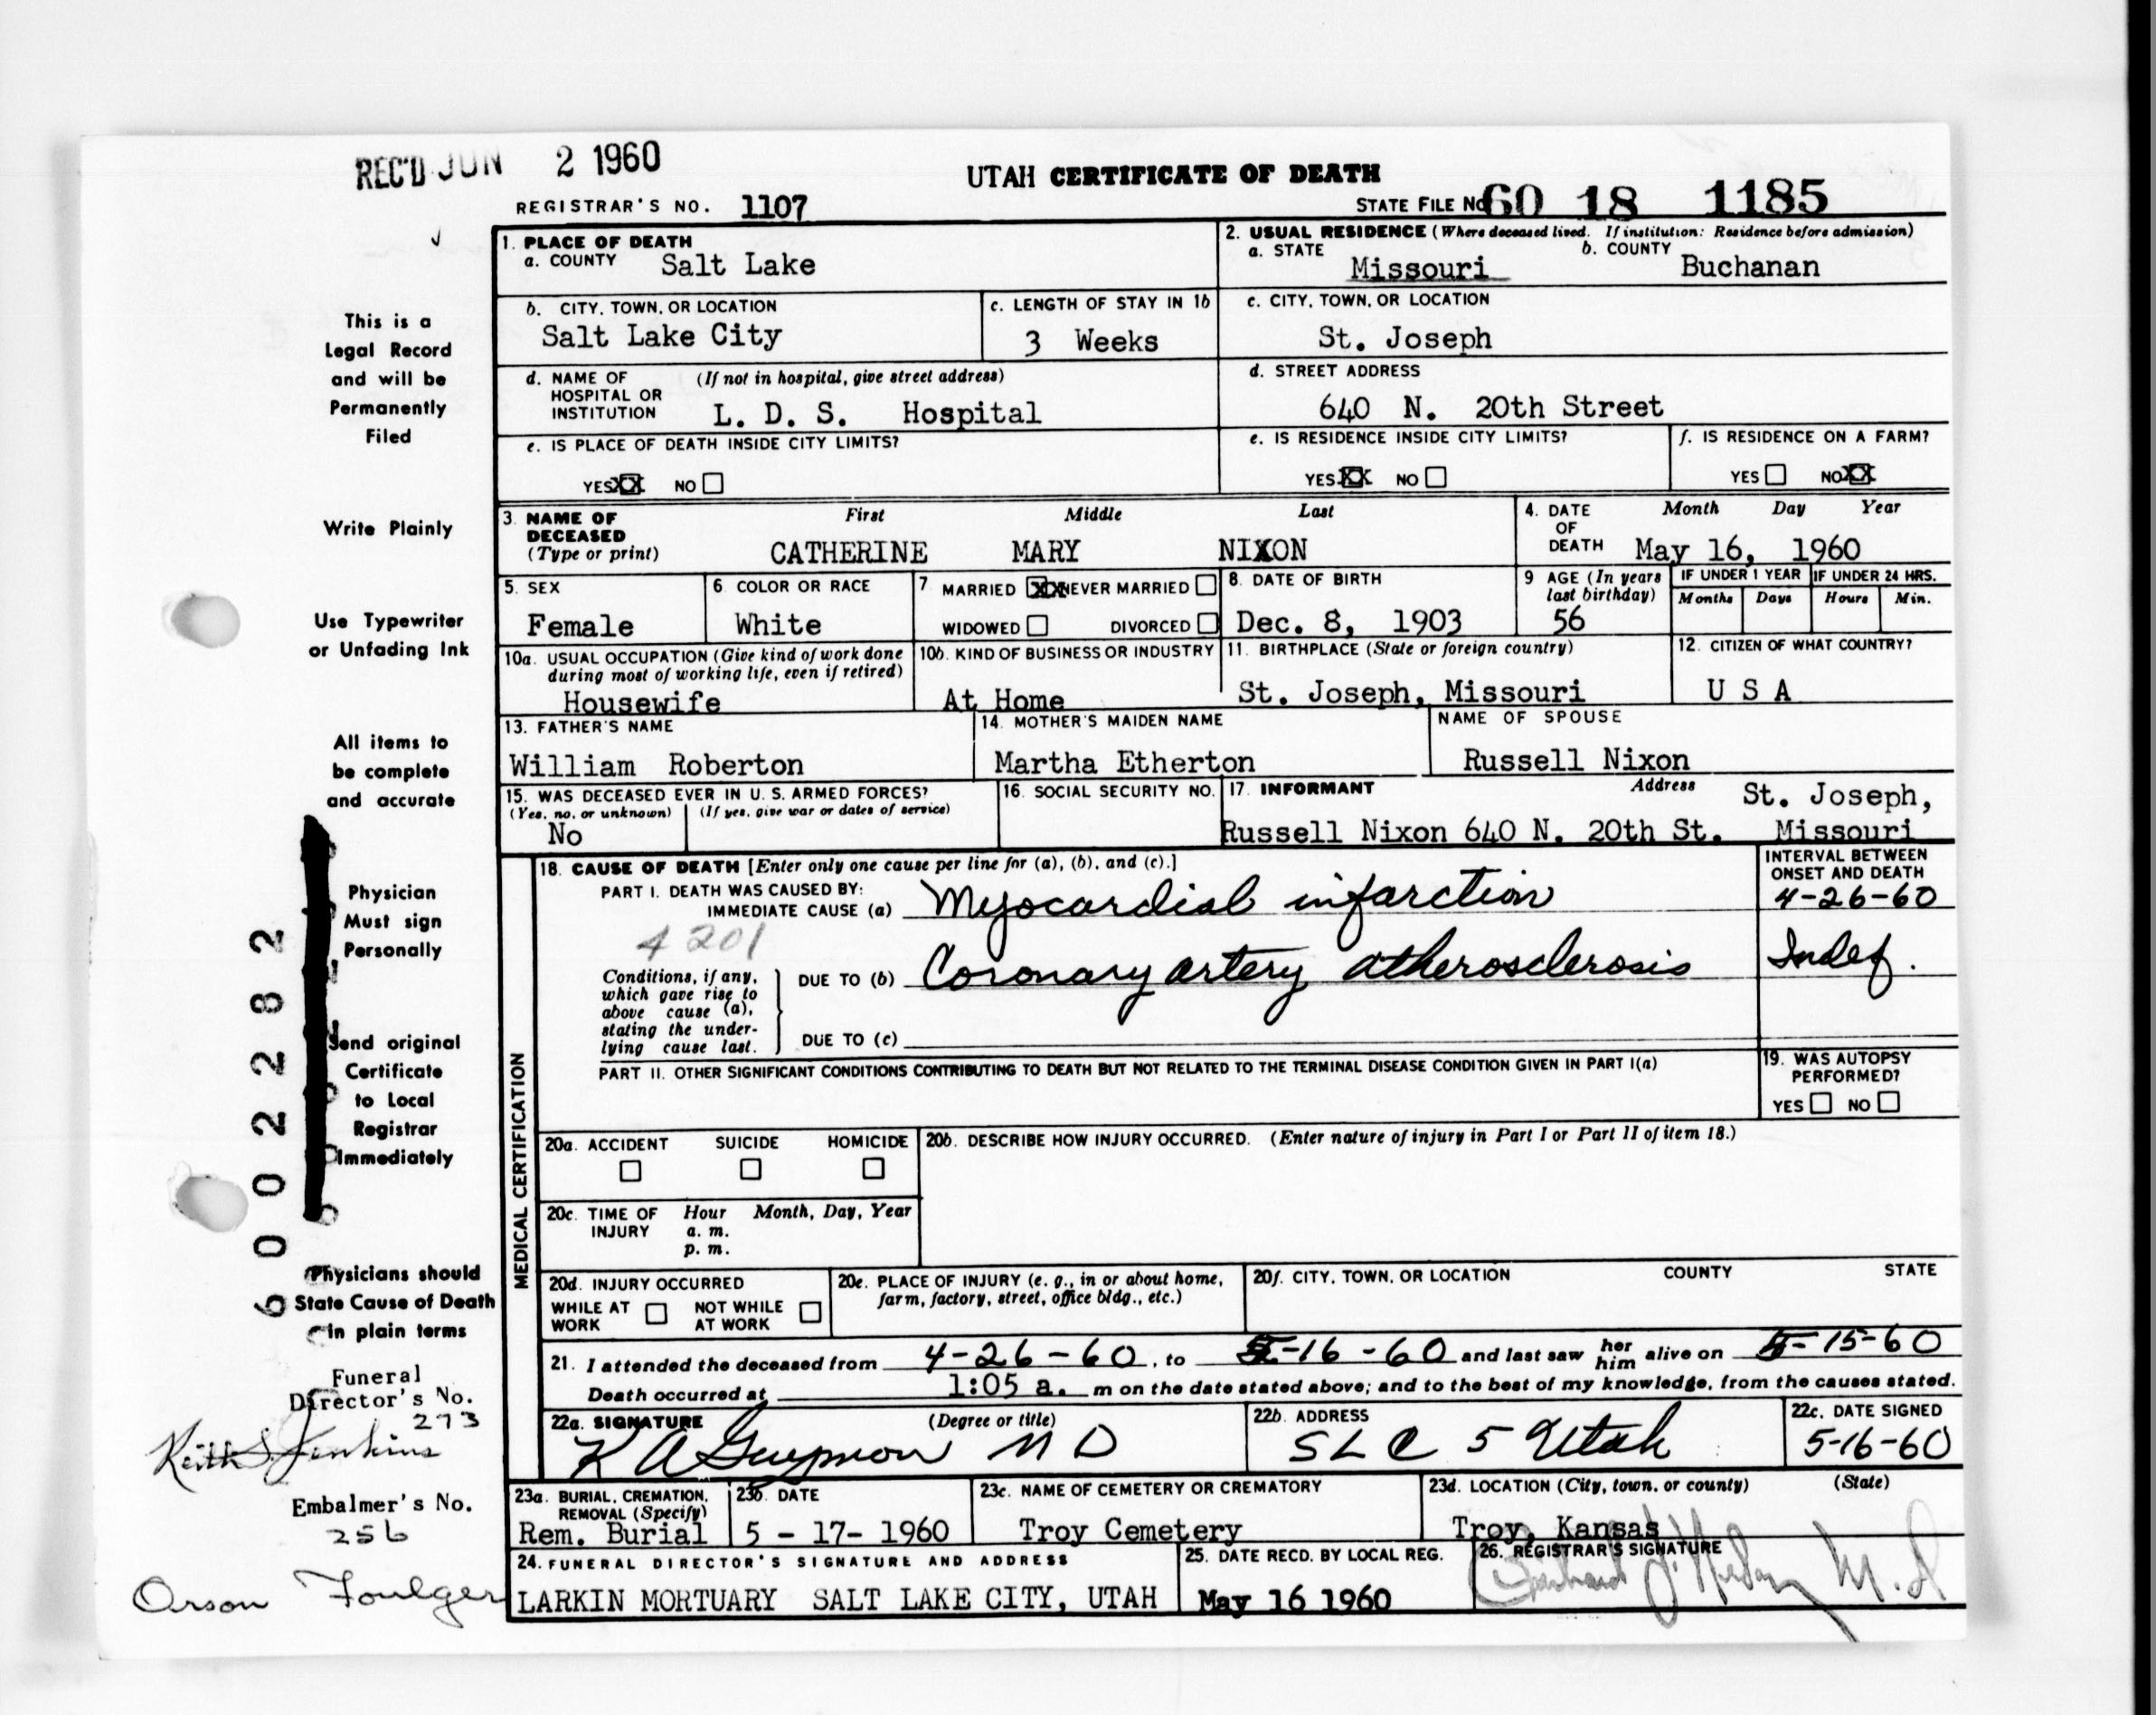 REC'D JUN 2 1960
UTAH CERTIFICATE OF DEATH
REGISTRAR'S NO. 1107
STATE FILE NO. 60 18 1185
1. PLACE OF DEATH
a. COUNTY Salt Lake
2. USUAL RESIDENCE (Where deceased lived. If institution: Residence before admission)
a. STATE Missouri b. COUNTY Buchanan
b. CITY, TOWN, OR LOCATION
Salt Lake City
c. LENGTH OF STAY IN 1b
3 Weeks
c. CITY, TOWN, OR LOCATION
St. Joseph
d. NAME OF HOSPITAL OR INSTITUTION (If not in hospital, give street address)
L. D. S. Hospital
d. STREET ADDRESS
640 N. 20th Street
e. IS PLACE OF DEATH INSIDE CITY LIMITS?
YES XX NO
e. IS RESIDENCE INSIDE CITY LIMITS?
YES XX NO
f. IS RESIDENCE ON A FARM?
YES NO XX
3. NAME OF DECEASED (Type or print)
First Middle Last
CATHERINE MARY NIXON
4. DATE OF DEATH Month Day Year
May 16, 1960
5. SEX
Female
6 COLOR OR RACE
White
7 MARRIED XX NEVER MARRIED
WIDOWED DIVORCED
8. DATE OF BIRTH
Dec. 8, 1903
9 AGE (In years last birthday)
56
IF UNDER 1 YEAR IF UNDER 24 HRS.
Months Days Hours Min.
10a. USUAL OCCUPATION (Give kind of work done during most of working life, even if retired)
Housewife
10b. KIND OF BUSINESS OR INDUSTRY
At Home
11. BIRTHPLACE (State or foreign country)
St. Joseph, Missouri
12. CITIZEN OF WHAT COUNTRY?
U S A
13. FATHER'S NAME
William Roberton
14. MOTHER'S MAIDEN NAME
Martha Etherton
NAME OF SPOUSE
Russell Nixon
15. WAS DECEASED EVER IN U. S. ARMED FORCES?
(Yes, no, or unknown) (If yes, give war or dates of service)
No
16. SOCIAL SECURITY NO.
17. INFORMANT Address
Russell Nixon 640 N. 20th St. St. Joseph, Missouri
MEDICAL CERTIFICATION
18. CAUSE OF DEATH [Enter only one cause per line for (a), (b), and (c).]
INTERVAL BETWEEN ONSET AND DEATH
PART I. DEATH WAS CAUSED BY:
IMMEDIATE CAUSE (a) Myocardial infarction 4-26-60
4201
Conditions, if any, which gave rise to above cause (a), stating the underlying cause last.
DUE TO (b) Coronary artery atherosclerosis Indef.
DUE TO (c)
PART II. OTHER SIGNIFICANT CONDITIONS CONTRIBUTING TO DEATH BUT NOT RELATED TO THE TERMINAL DISEASE CONDITION GIVEN IN PART I(a)
19. WAS AUTOPSY PERFORMED?
YES NO
20a. ACCIDENT SUICIDE HOMICIDE
20b. DESCRIBE HOW INJURY OCCURRED. (Enter nature of injury in Part I or Part II of item 18.)
20c. TIME OF INJURY Hour Month, Day, Year
a. m.
p. m.
20d. INJURY OCCURRED
WHILE AT WORK NOT WHILE AT WORK
20e. PLACE OF INJURY (e. g., in or about home, farm, factory, street, office bldg., etc.)
20f. CITY, TOWN, OR LOCATION COUNTY STATE
21. I attended the deceased from 4-26-60, to 5-16-60 and last saw her him alive on 5-15-60
Death occurred at 1:05 a. m on the date stated above; and to the best of my knowledge, from the causes stated.
22a. SIGNATURE (Degree or title)
K A Guymon M D
22b. ADDRESS
SLC 5 Utah
22c. DATE SIGNED
5-16-60
23a. BURIAL, CREMATION, REMOVAL (Specify)
Rem. Burial
23b. DATE
5 - 17- 1960
23c. NAME OF CEMETERY OR CREMATORY
Troy Cemetery
23d. LOCATION (City, town, or county) (State)
Troy, Kansas
24. FUNERAL DIRECTOR'S SIGNATURE AND ADDRESS
LARKIN MORTUARY SALT LAKE CITY, UTAH
25. DATE RECD. BY LOCAL REG.
May 16 1960
26. REGISTRAR'S SIGNATURE
M.D.
This is a
Legal Record
and will be
Permanently
Filed
Write Plainly
Use Typewriter
or Unfading Ink
All items to
be complete
and accurate
Physician
Must sign
Personally
Send original
Certificate
to Local
Registrar
Immediately
Physicians should
State Cause of Death
in plain terms
6002282
Funeral
Director's No.
273
Keith S. Jenkins
Embalmer's No.
256
Orson Foulger